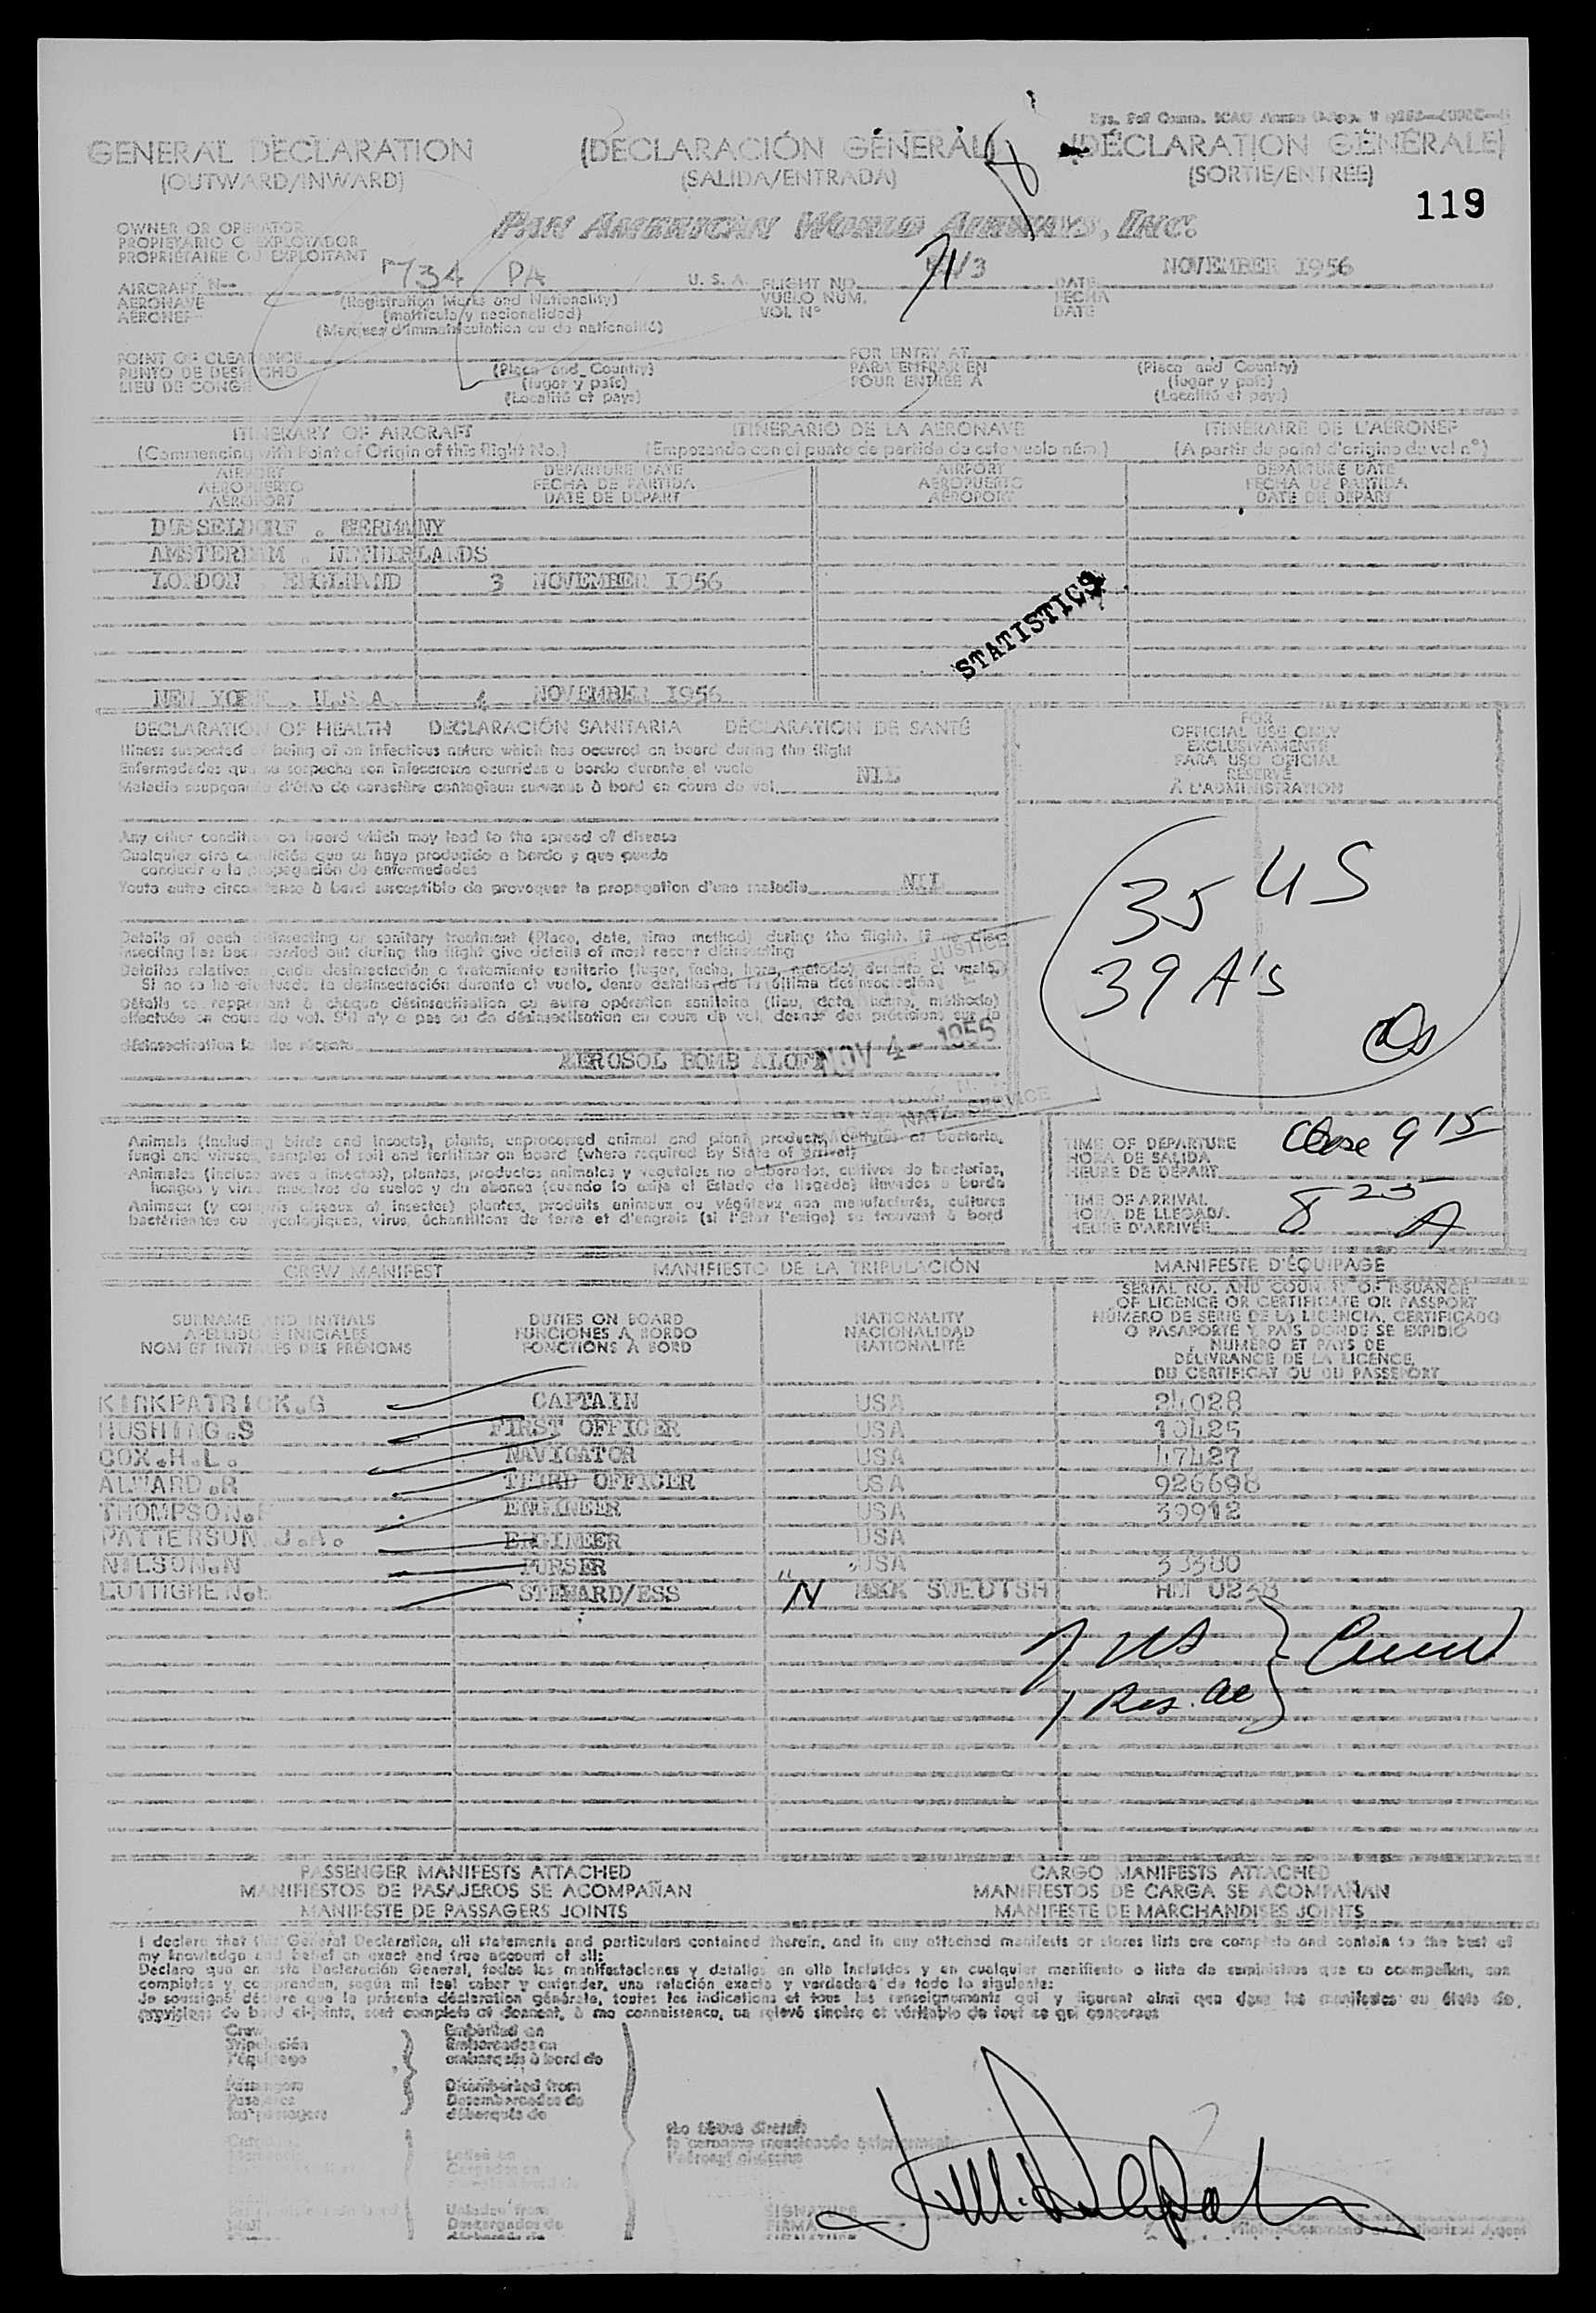 GENERAL DECLARATION (DECLARACIÓN GENERAL) (DÉCLARATION GÉNÉRALE)
(OUTWARD/INWARD) (SALIDA/ENTRADA) (SORTIE/ENTRÉE)
119
OWNER OR OPERATOR
PROPIETARIO O EXPLOTADOR
PROPRIÉTAIRE OU EXPLOITANT
PAN AMERICAN WORLD AIRWAYS, INC.
AIRCRAFT N
AERONAVE
AERONEF
734 PA U. S. A.
(Registration Marks and Nationality)
(matrícula y nacionalidad)
(Marques d'immatriculation ou de nationalité)
FLIGHT NO. 71/3
VUELO NÚM.
VOL N°
DATE NOVEMBER 1956
FECHA
DATE
POINT OF CLEARANCE
PUNTO DE DESPACHO
LIEU DE CONGÉ
(Place and Country)
(lugar y país)
(Localité et pays)
FOR ENTRY AT
PARA ENTRAR EN
POUR ENTRÉE À
(Place and Country)
(lugar y país)
(Localité et pays)
ITINERARY OF AIRCRAFT ITINERARIO DE LA AERONAVE ITINÉRAIRE DE L'AÉRONEF
(Commencing with Point of Origin of this flight No.) (Empezando con el punto de partida de este vuelo núm.) (A partir du point d'origine du vol n°)
AIRPORT DEPARTURE DATE AIRPORT DEPARTURE DATE
AEROPUERTO FECHA DE PARTIDA AEROPUERTO FECHA DE PARTIDA
AÉROPORT DATE DE DÉPART AÉROPORT DATE DE DÉPART
DUSSELDORF . GERMANY
AMSTERDAM . NETHERLANDS
LONDON ENGLNAND 3 NOVEMBER 1956
STATISTICS
NEW YORK . U.S.A. 4 NOVEMBER 1956
DECLARATION OF HEALTH DECLARACIÓN SANITARIA DÉCLARATION DE SANTÉ
Illness suspected of being of an infectious nature which has occured on board during the flight
Enfermedades que se sospecha son infecciosas ocurridas a bordo durante el vuelo
Maladie soupçonnée d'être de caractère contagieux survenue à bord en cours de vol NIL
FOR
OFFICIAL USE ONLY
EXCLUSIVAMENTE
PARA USO OFICIAL
RÉSERVÉ
À L'ADMINISTRATION
Any other condition on board which may lead to the spread of disease
Cualquier otra condición que se haya producido a bordo y que pueda
conducir a la propagación de enfermedades
Toute autre circonstance à bord susceptible de provoquer la propagation d'une maladie NIL
35 US
39 A's
Details of each disinsecting or sanitary treatment (Place, date, time method) during the flight. If no disinsecting has been carried out during the flight give details of most recent disinsecting
Detalles relativos a cada desinsectación o tratamiento sanitario (lugar, fecha, hora, método) durante el vuelo.
Si no se ha efectuado la desinsectación durante el vuelo, dense detalles de la última desinsectación
Détails se rapportant à chaque désinsectisation ou autre opération sanitaire (lieu, date, heure, méthode)
effectuée en cours de vol. S'il n'y a pas eu de désinsectisation en cours de vol, donner des précisions sur la
désinsectisation la plus récente
AEROSOL BOMB ALOFT
NOV 4 - 1956
Animals (including birds and insects), plants, unprocessed animal and plant products, cultures of bacteria,
fungi and viruses, samples of soil and fertilizer on board (where required by State of arrival)
Animales (incluso aves e insectos), plantas, productos animales y vegetales no elaborados, cultivos de bacterias,
hongos y virus muestras de suelos y de abonos (cuando lo exija el Estado de llegada) llevados a bordo
Animaux (y compris oiseaux et insectes) plantes, produits animaux ou végétaux non manufacturés, cultures
bactériennes ou mycologiques, virus, échantillons de terre et d'engrais (si l'État l'exige) se trouvant à bord
TIME OF DEPARTURE
HORA DE SALIDA
HEURE DE DÉPART
Close 9 15
TIME OF ARRIVAL
HORA DE LLEGADA
HEURE D'ARRIVÉE
8 25 A
CREW MANIFEST MANIFIESTO DE LA TRIPULACIÓN MANIFESTE D'ÉQUIPAGE
SURNAME AND INITIALS
APELLIDO E INICIALES
NOM ET INITIALES DES PRÉNOMS
DUTIES ON BOARD
FUNCIONES A BORDO
FONCTIONS À BORD
NATIONALITY
NACIONALIDAD
NATIONALITÉ
SERIAL NO. AND COUNTRY OF ISSUANCE
OF LICENCE OR CERTIFICATE OR PASSPORT
NÚMERO DE SERIE DE LA LICENCIA, CERTIFICADO
O PASAPORTE Y PAÍS DONDE SE EXPIDIÓ
NUMÉRO ET PAYS DE
DÉLIVRANCE DE LA LICENCE,
DU CERTIFICAT OU DU PASSEPORT
KIRKPATRICK.G CAPTAIN USA 24028
HUSHING.S FIRST OFFICER USA
COX.H.L. NAVIGATOR USA 47427
ALWARD.R THIRD OFFICER USA 926698
THOMPSON. ENGINEER USA 39912
PATTERSON.J.A. ENGINEER USA
NILSON.N PURSER USA 33380
STEWARD/ESS N SWEDISH HM 0238
7 US
1 Res. Al
PASSENGER MANIFESTS ATTACHED CARGO MANIFESTS ATTACHED
MANIFIESTOS DE PASAJEROS SE ACOMPAÑAN MANIFIESTOS DE CARGA SE ACOMPAÑAN
MANIFESTE DE PASSAGERS JOINTS MANIFESTE DE MARCHANDISES JOINTS
I declare that this General Declaration, all statements and particulars contained therein, and in any attached manifests or stores lists are complete and contain to the best of
my knowledge and belief an exact and true account of all:
Declaro que en esta Declaración General, todas las manifestaciones y detalles en ella incluidos y en cualquier manifiesto o lista de suministros que se acompañan, son
completos y comprenden, según mi leal saber y entender, una relación exacta y verdadera de todo lo siguiente:
Je soussigné déclare que la présente déclaration générale, toutes les indications et tous les renseignements qui y figurent ainsi que dans les manifestes ou états de
provisions de bord ci-joints, sont complets et donnent, à ma connaissance, un relevé sincère et véritable de tout ce qui concerne
Crew
Tripulación
l'équipage
Embarked on
Embarcados en
embarqués à bord de
Passengers
Pasajeros
les passagers
Disembarked from
Desembarcados de
débarqués de
Unladen from
Descargados de
SIGNATURE
FIRMA